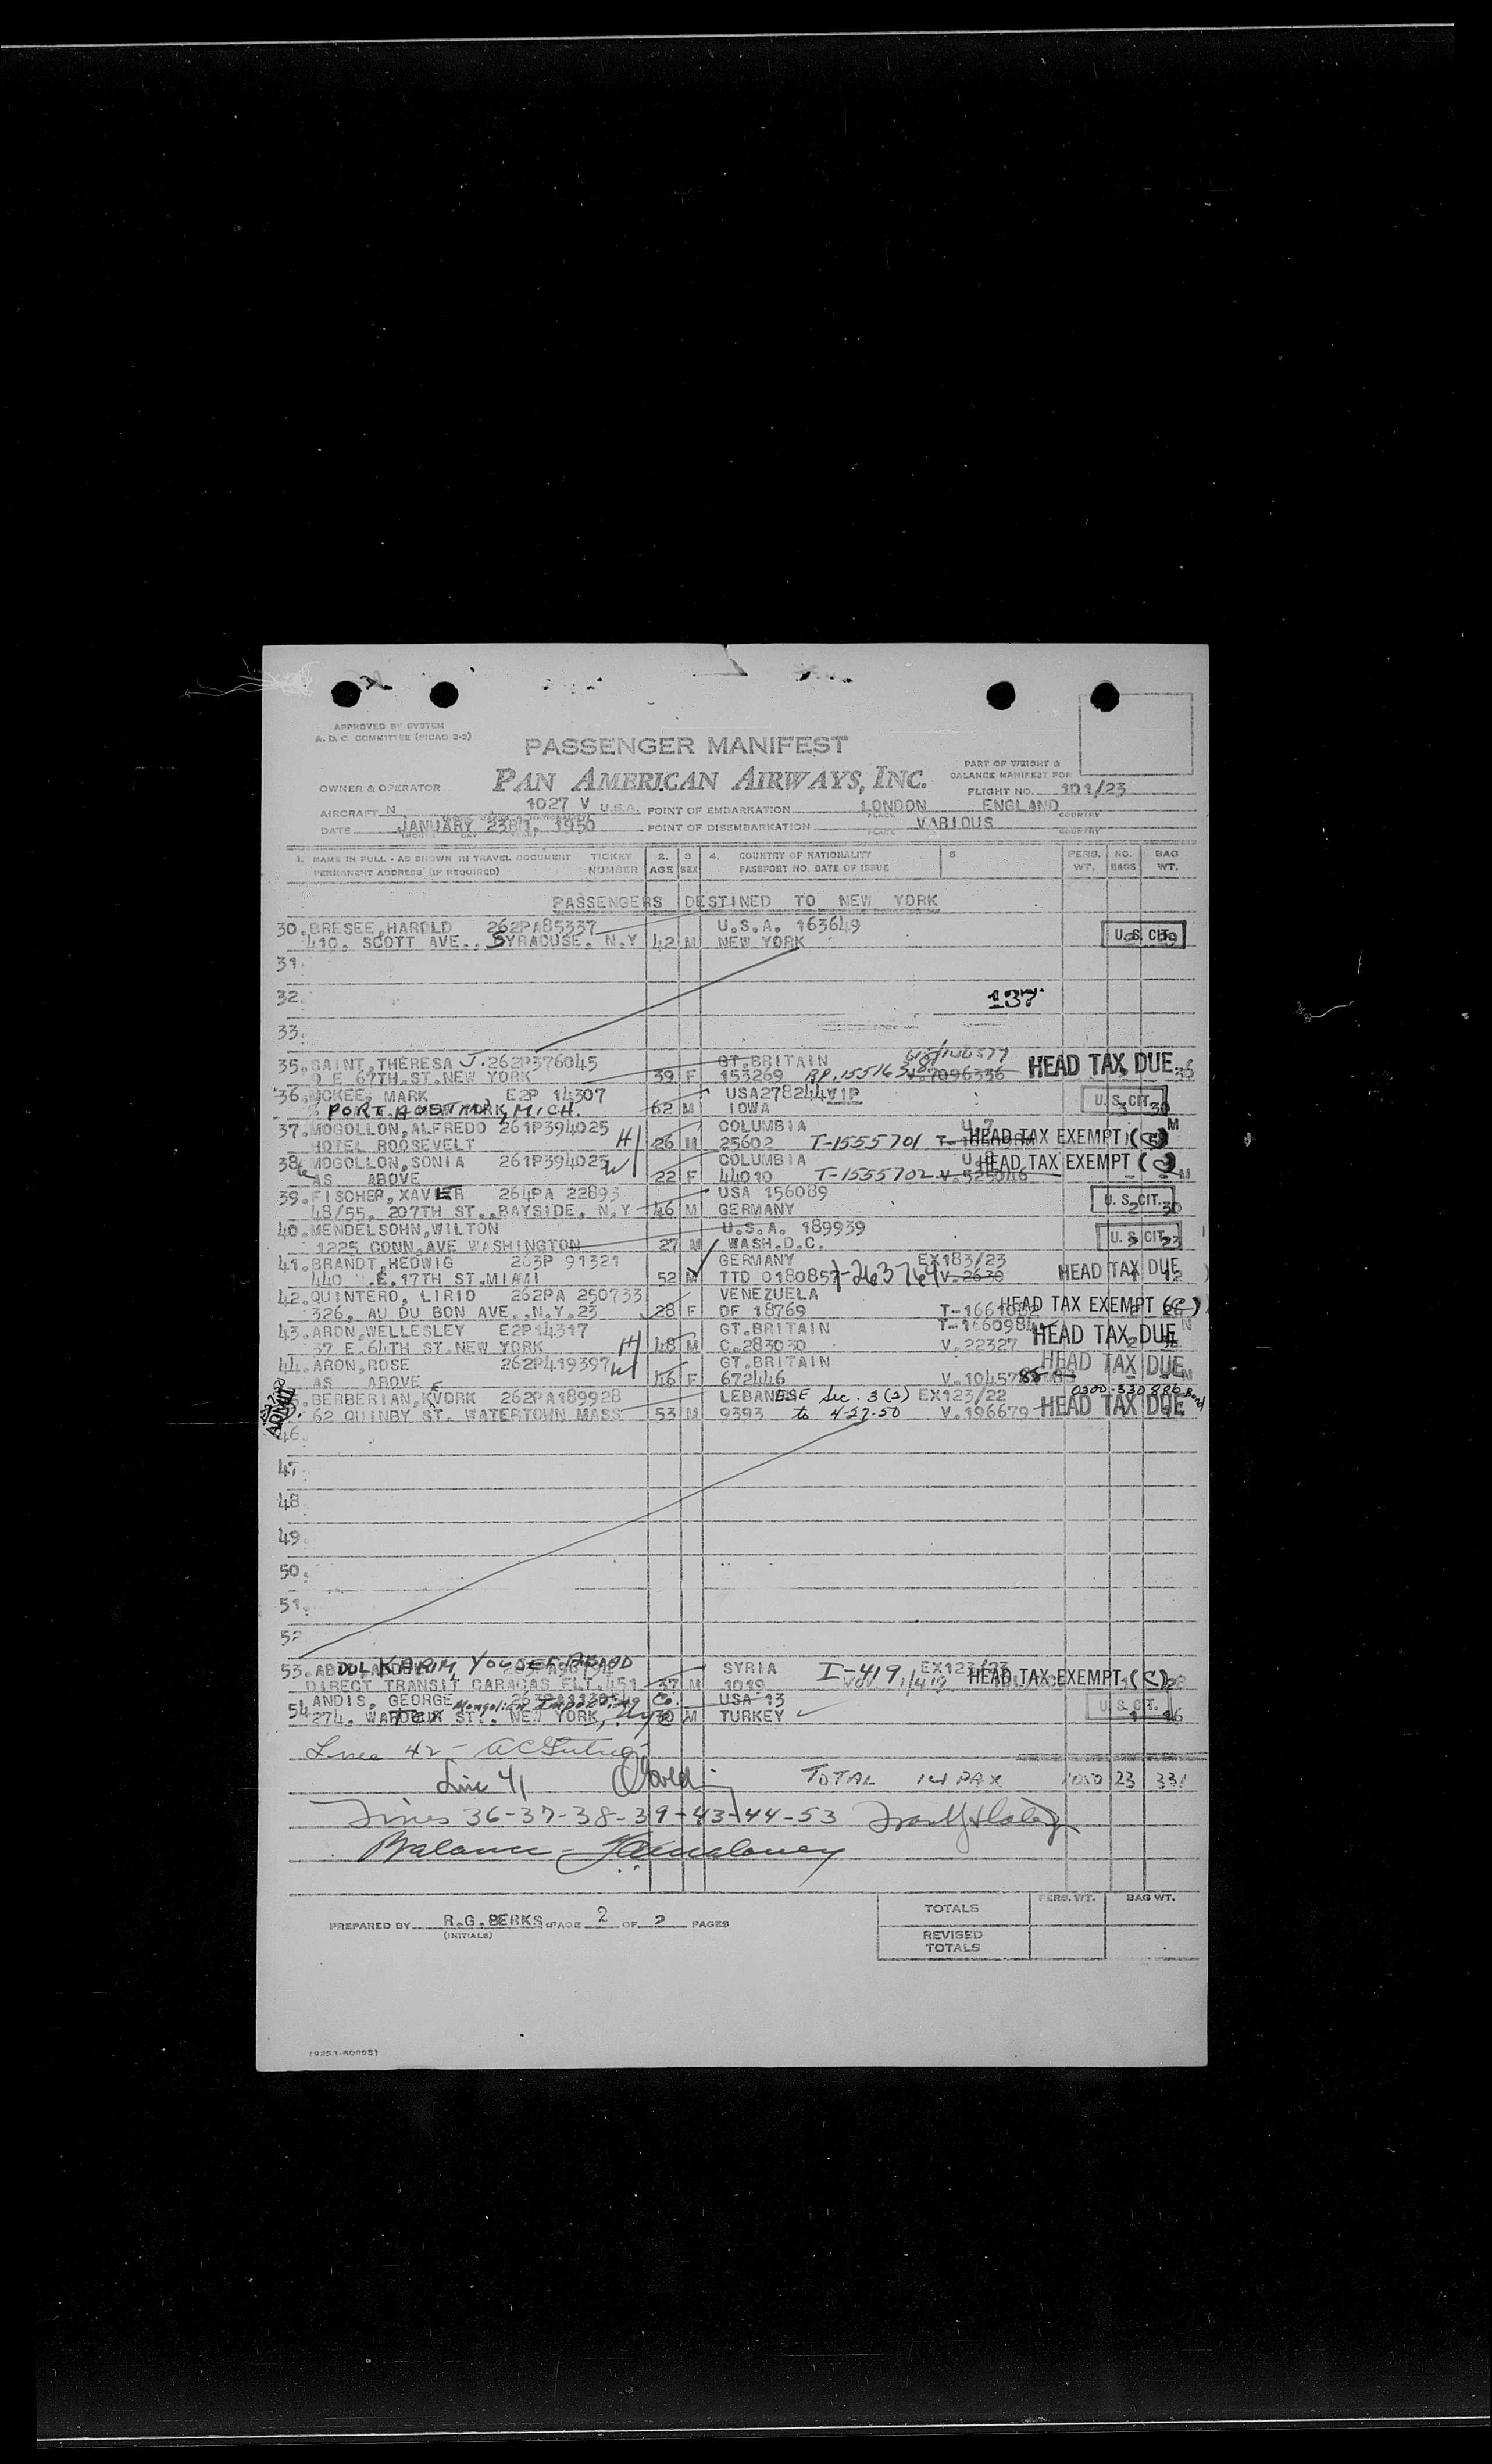 APPROVED BY SYSTEM
A. D. C. COMMITTEE (PICAO 2-2)
PASSENGER MANIFEST
PAN AMERICAN AIRWAYS, INC.
PART OF WEIGHT &
BALANCE MANIFEST FOR
OWNER & OPERATOR
FLIGHT NO. 101/23
AIRCRAFT N 1027 V U.S.A. POINT OF EMBARKATION LONDON ENGLAND
PLACE COUNTRY
DATE JANUARY 23RD. 1950 POINT OF DISEMBARKATION VARIOUS
PLACE COUNTRY
1. NAME IN FULL - AS SHOWN IN TRAVEL DOCUMENT TICKET 2. 3 4. COUNTRY OF NATIONALITY 5 PERS. NO. BAG
PERMANENT ADDRESS (IF REQUIRED) NUMBER AGE SEX PASSPORT NO. DATE OF ISSUE WT. BAGS WT.
PASSENGERS DESTINED TO NEW YORK
30. BRESEE, HAROLD 262PA85337 U.S.A. 163649
410. SCOTT AVE.. SYRACUSE. N.Y 42 M NEW YORK U.S. CIT.
31.
32. 137
33.
35. SAINT, THERESA J. 262P376045 GT.BRITAIN
9 E 67TH.ST.NEW YORK 39 F 153269 RP.155163 V.7096336 HEAD TAX DUE
36. MCKEE, MARK E2P 14307 USA278244 VIP
PORT MICH. 62 M IOWA U.S. CIT. 30
37. MOGOLLON, ALFREDO 261P394025 H COLUMBIA U.7 M
HOTEL ROOSEVELT 26 M 25602 T-1555701 HEAD TAX EXEMPT (C)
38. MOGOLLON, SONIA 261P394025 W COLUMBIA U.8
AS ABOVE 22 F 44010 T-1555702 V.525046 HEAD TAX EXEMPT (C) M
39. FISCHER, XAVIER 264PA 22893 USA 156089
48/55. 207TH ST..BAYSIDE, N.Y 46 M GERMANY U.S. CIT. 30
40. MENDELSOHN, WILTON U.S.A. 189939
1225 CONN.AVE WASHINGTON 27 M WASH.D.C. U.S. CIT. 23
41. BRANDT, HEDWIG 263P 91321 GERMANY EX183/23
440 .E.17TH ST.MIAMI 52 M TTD 0180857 -263764 V.2630 HEAD TAX DUE 12
42. QUINTERO, LIRIO 262PA 250733 VENEZUELA
326. AU DU BON AVE..N.Y.23 28 F DF 18769 HEAD TAX EXEMPT (C)
43. ARON, WELLESLEY E2P14317 H GT.BRITAIN T-1660984 N
37 E.64TH ST.NEW YORK 48 M C.283030 V.22327 HEAD TAX DUE
44. ARON, ROSE 262P419397 W GT.BRITAIN HEAD TAX DUE
AS ABOVE 46 F 672446 N
BERBERIAN, KVORK 262PA189928 LEBANESE Sec. 3(2) EX123/22 0300-330886 Bond
62 QUINBY ST. WATERTOWN MASS 53 M 9393 to 4-27-50 V.196679 HEAD TAX DUE
46.
47.
48
49.
50.
51.
52
53. ABDUL KARIM, YOUSEF SYRIA I-419 EX123/23
DIRECT TRANSIT CARACAS FLT.451 37 M 1019 HEAD TAX EXEMPT (C) 28
54. ANDIS, GEORGE Mongolian Importing Co. USA 13
274. ST. NEW YORK, Ny M TURKEY U.S. CIT. 16
Line 42 -
Line 41 TOTAL 14 PAX 1050 23 331
Lines 36-37-38-39-43-44-53
Balance -
TOTALS PERS. WT. BAG WT.
PREPARED BY R.G.BERKS. PAGE 2 OF 2 PAGES
(INITIALS)
REVISED
TOTALS